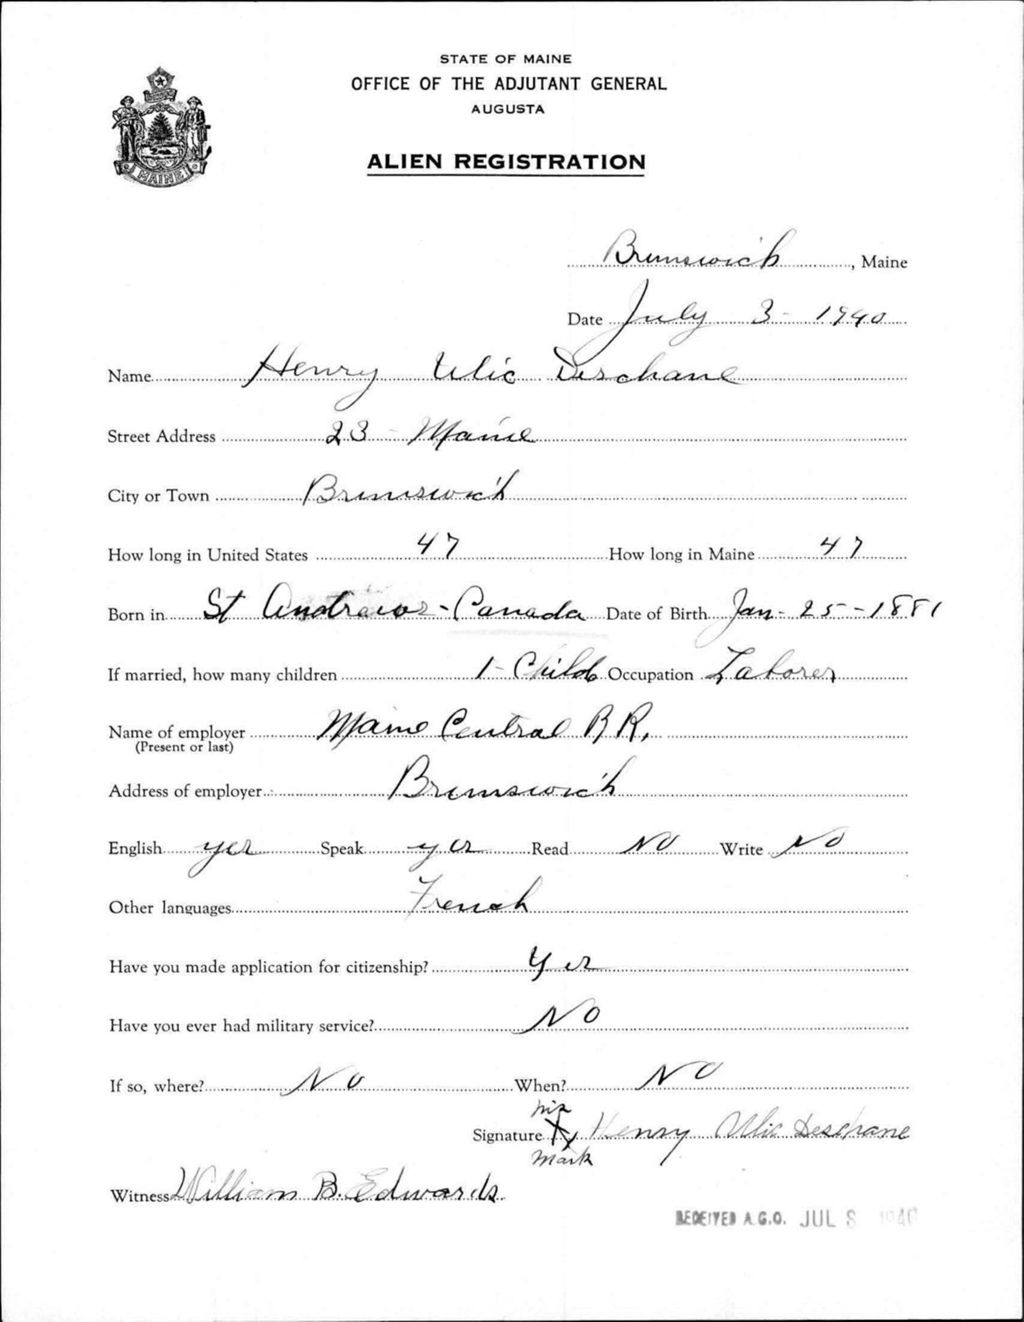 STATE OF MAINE
OFFICE OF THE ADJUTANT GENERAL
AUGUSTA
ALIEN REGISTRATION
MAINE
Brunswick, Maine
Date July 3 - 1940
Name Henry Ulic Deschane
Street Address 23 - Maine
City or Town Brunswick
How long in United States 47 How long in Maine 47
Born in St Andrews - Canada Date of Birth Jan - 25 - 1881
If married, how many children 1 - Child Occupation Laborer
Name of employer Maine Central R R.
(Present or last)
Address of employer Brunswick
English yes Speak yes Read No Write No
Other languages French
Have you made application for citizenship? Yes
Have you ever had military service? No
If so, where? No When? No
his
Signature X Henry Ulic Deschane
mark
Witness William B. Edwards
RECEIVED A.G.O. JUL 8 1940